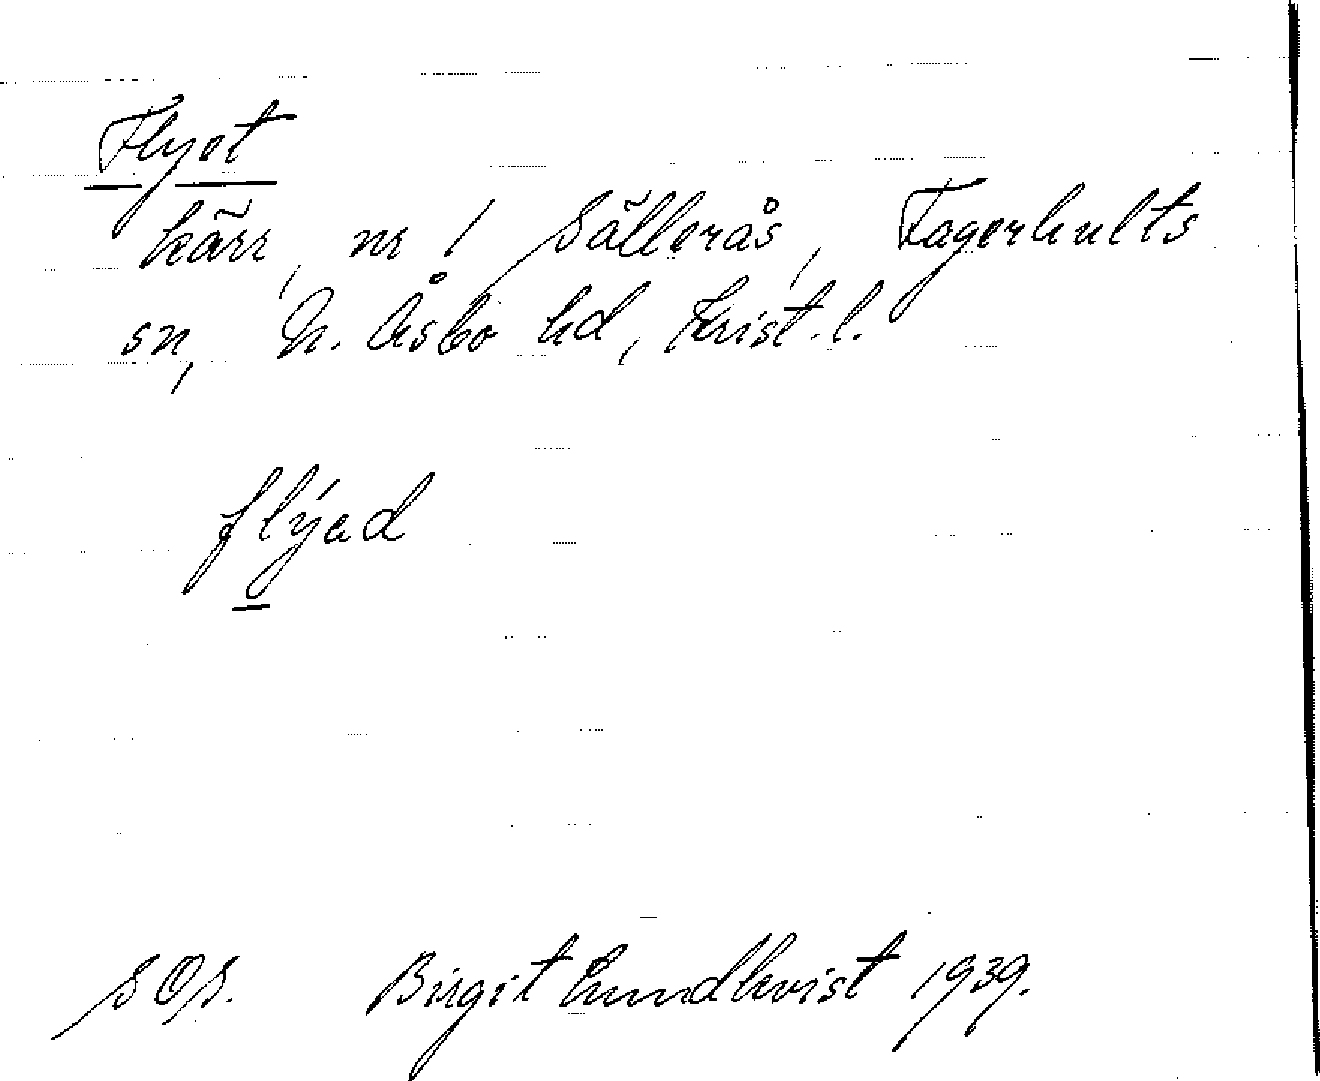 Flyet
kärr, nr 1 Sällerås, Fagerhults
sn, N. Åsbo hd, Krist. l.
flýad
SOS. Birgit Lundkvist 1939.